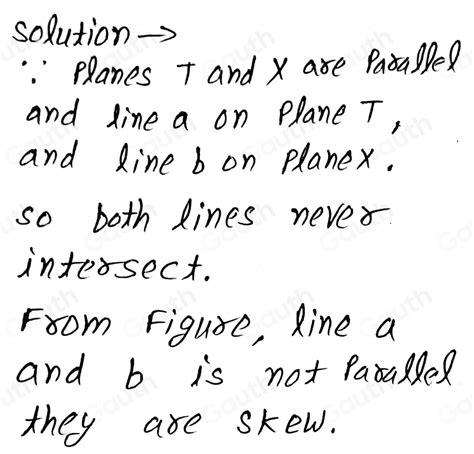 solution →
∵ Planes T and X are Parallel
and line a on Plane T,
and line b on Plane X.
so both lines never
intersect.
From Figure, line a
and b is not Parallel
they are skew.